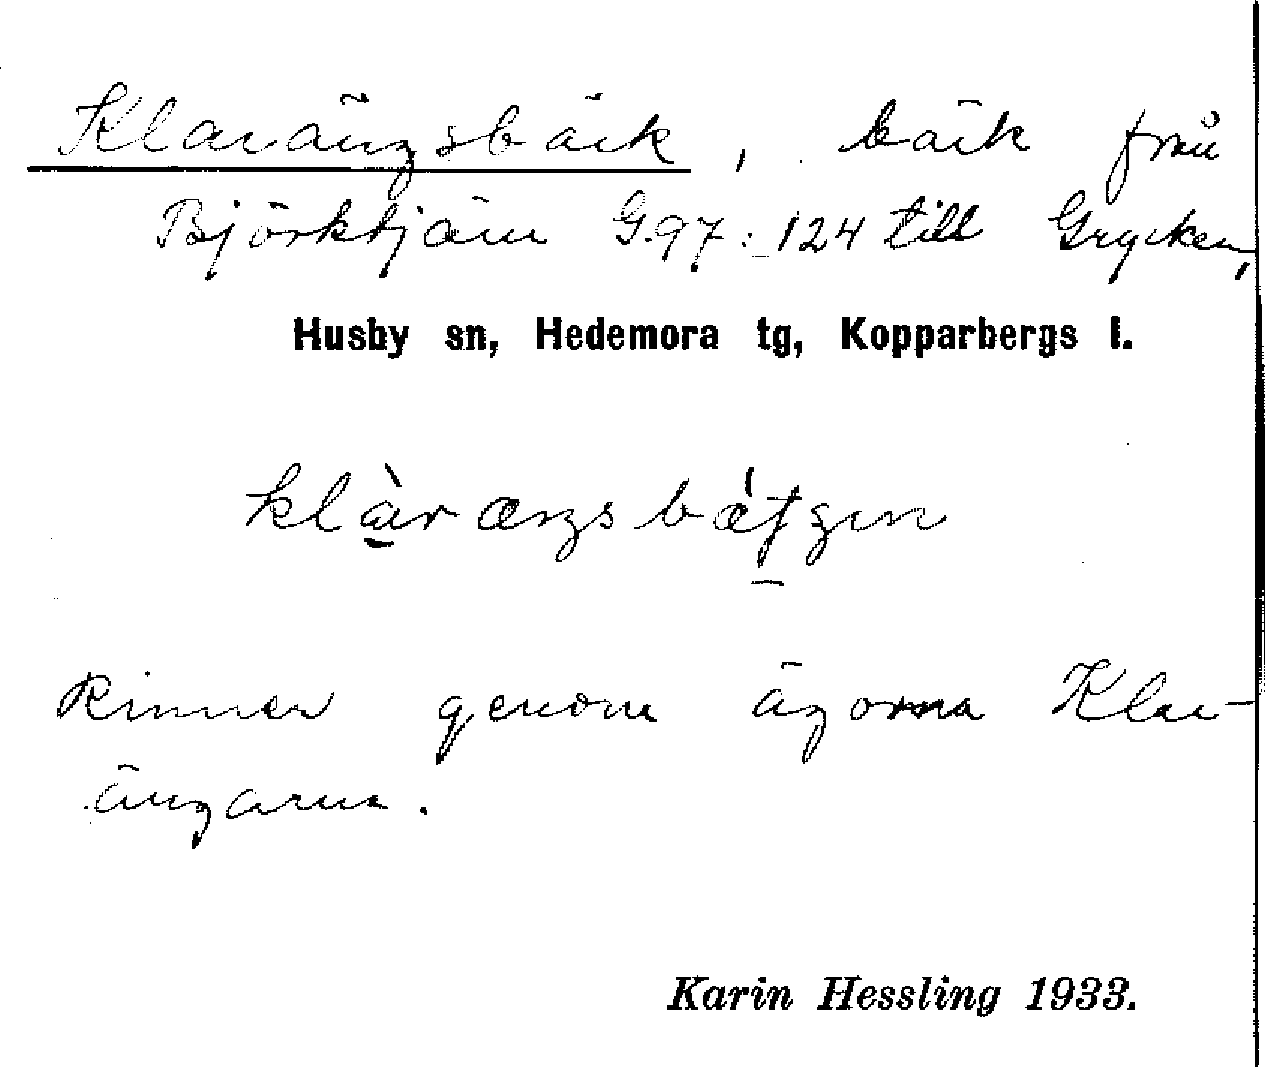 Klarängsbäck, bäck från
Björktjärn G.97:124 till Grycken,
Husby sn, Hedemora tg, Kopparbergs l.
Rinner genom ägorna Klar-
ängarna.
Karin Hessling 1933.